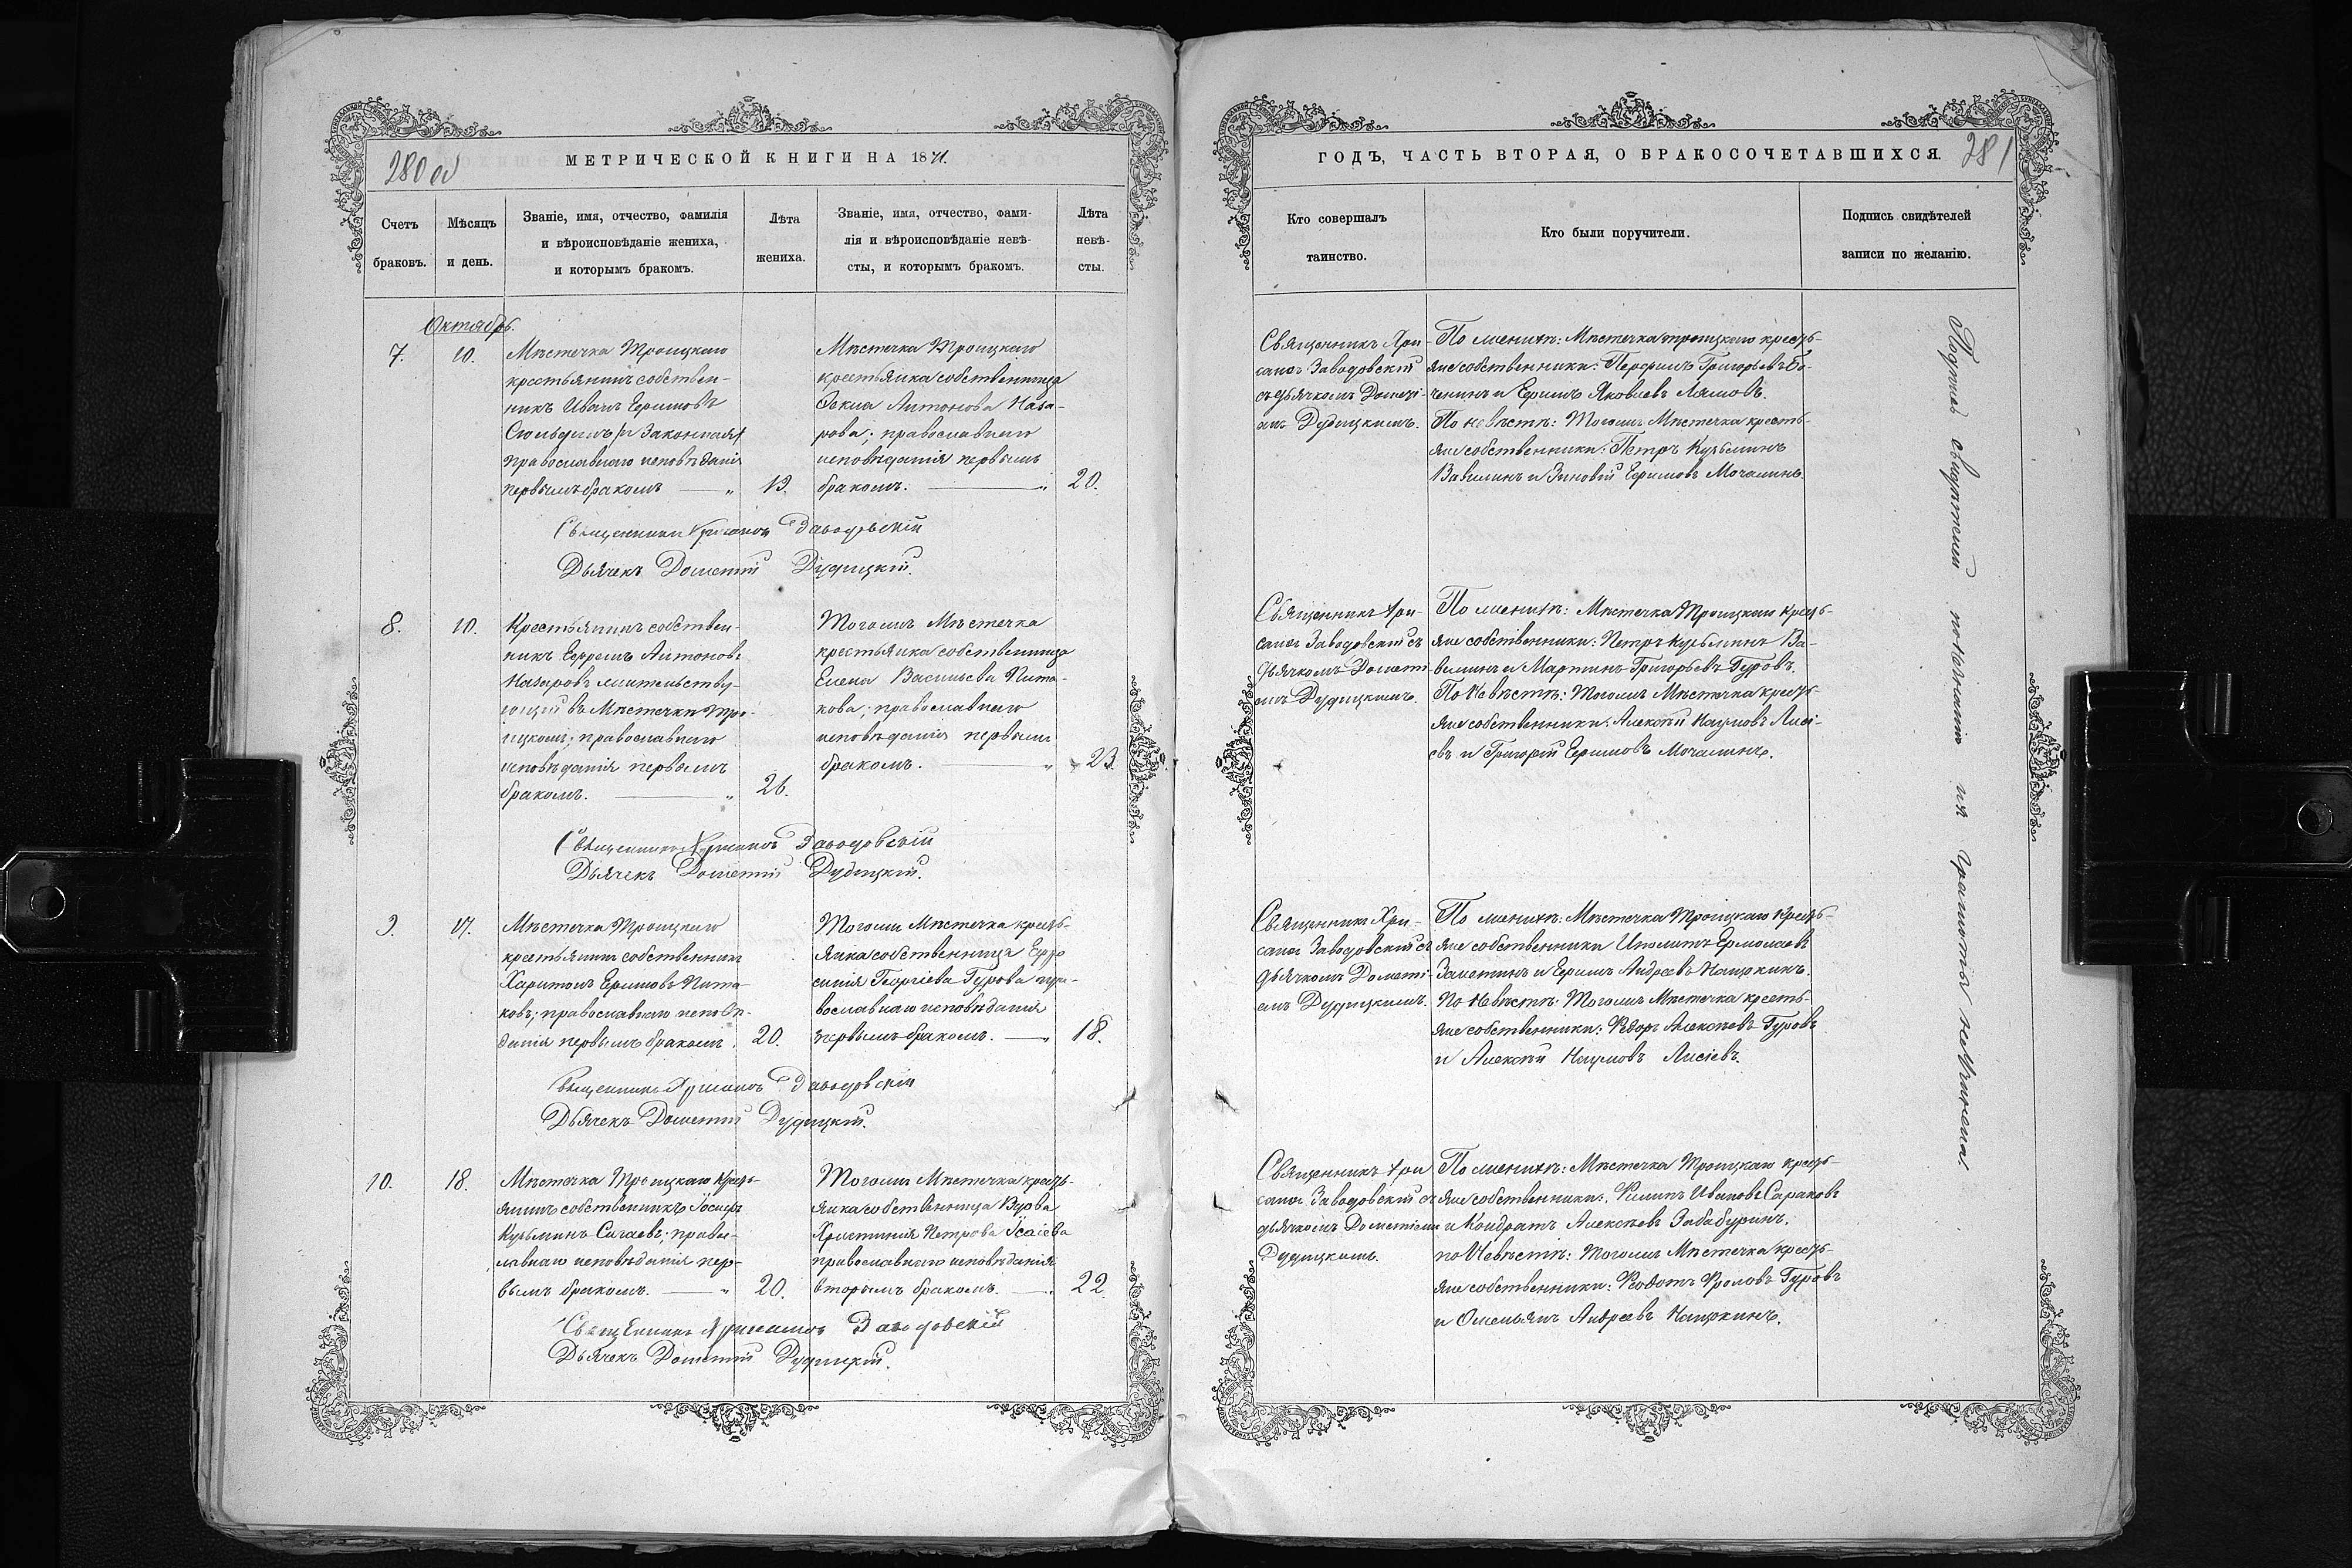 280 об
МЕТРИЧЕСКОЙ КНИГИ НА 1871.
Счетъ браковъ.
Мѣсяцъ и день.
Званіе, имя, отчество, фамилія
и вѣроисповѣданіе жениха,
и которымъ бракомъ.
Лѣта
жениха.
Званіе, имя, отчество, фами-
лія и вѣроисповѣданіе невѣ-
сты, и которымъ бракомъ.
Лѣта
невѣ-
сты.
Октябрь.
7.
10.
Мѣстечка Троицкаго
крестьянинъ собствен-
никъ Иванъ Ефимовъ
православнаго исповѣданія
первымъ бракомъ — „
Мѣстечка Троицкаго
крестьянка собственница
Фекла Антонова Наза-
рова; православнаго
исповѣданія первымъ
бракомъ. — „
20.
Священникъ Хрисанѳъ Заводовскій
Дьячекъ Дометій Дудицкій.
8.
10.
Крестьянинъ собствен-
никъ Ефремъ Антоновъ
Назаровъ жительству-
ющій въ Мѣстечкѣ Тро-
ицкомъ; православнаго
исповѣданія первымъ
бракомъ. — „
26.
Тогожъ Мѣстечка
крестьянка собственница
Елена Васильева Пита-
кова; православнаго
исповѣданія первымъ
бракомъ. — „
23.
Священникъ Хрисанѳъ Заводовскій
Дьячекъ Дометій Дудицкій.
9.
17.
Мѣстечка Троицкаго
крестьянинъ собственникъ
Харитонъ Ефимовъ Пита-
ковъ; православнаго исповѣ-
данія первымъ бракомъ.
20.
Тогожъ Мѣстечка кресть-
янка собственница Ефро
синія Георгіева Гурова пра-
вославнаго исповѣданія
первымъ бракомъ. — „
18.
Священникъ Хрисанѳъ Заводовскій
Дьячекъ Дометій Дудицкій.
10.
18.
Мѣстечка Троицкаго кресть-
янинъ собственникъ Іосифъ
Кузьминъ Сычаевъ; право-
славнаго исповѣданія пер-
вымъ бракомъ. — „
20.
Тогожъ Мѣстечка кресть-
янка собственница Вдова
Христинія Петрова Ісаіева
православнаго исповѣданія
вторымъ бракомъ. —
22.
Священникъ Хрисанѳъ Заводовскій
Дьячекъ Дометій Дудицкій.
ГОДЪ, ЧАСТЬ ВТОРАЯ, О БРАКОСОЧЕТАВШИХСЯ.
281
Кто совершалъ
таинство.
Кто были поручители.
Подпись свидѣтелей
записи по желанію.
Священникъ Хри-
санѳъ Заводовскій
съ дьячкомъ Дометі-
емъ Дудицкимъ.
По женихѣ: Мѣстечка троицкаго кресть-
яне собственники: Перфилъ Григорьевъ Бо-
ченинъ и Ефимъ Яковлевъ Лямовъ.
По невѣстѣ: Тогожъ Мѣстечка кресть-
яне собственники: Петръ Кузьминъ
Вавилинъ и Зиновій Ефимовъ Мочалинъ.
Священникъ Хри-
санѳъ Заводовскій съ
дьячкомъ Домети-
емъ Дудицкимъ.
По женихѣ: Мѣстечка Троицкаго кресть-
яне собственники: Петръ Кузьминъ Ва-
вилинъ и Мартинъ Григорьевъ Гуровъ.
По Невѣстѣ: Тогожъ Мѣстечка кресть-
яне собственники: Алексѣй Наумовъ Лисі-
евъ и Григорій Ефимовъ Мочалинъ.
Священникъ Хри-
санѳъ Заводовскій съ
дьячкомъ Домети-
емъ Дудицкимъ.
По женихѣ: Мѣстечка Троицкаго кресть-
яне собственники Ипполитъ Ермолаевъ
Заметинъ и Ефимъ Андреевъ Нащокинъ.
По Невѣстѣ: Тогожъ Мѣстечка кресть-
яне собственники: Ѳедоръ Алексѣевъ Гуровъ
и Алексѣй Наумовъ Лисіевъ.
Священникъ Хри
санѳъ Заводовскій съ
дьячкомъ Дометіемъ
Дудицкимъ.
По женихѣ: Мѣстечка Троицкаго кресть-
яне собственники: Филипъ Ивановъ Сараковъ
и Кондратъ Алексѣевъ Забабуринъ.
по Невѣстѣ: Тогожъ Мѣстечка кресть-
яне собственники: Ѳедотъ Фроловъ Гуровъ
и Омельянъ Андреевъ Нащокинъ.
Подписей свидѣтелей по незнанію ихъ грамотѣ